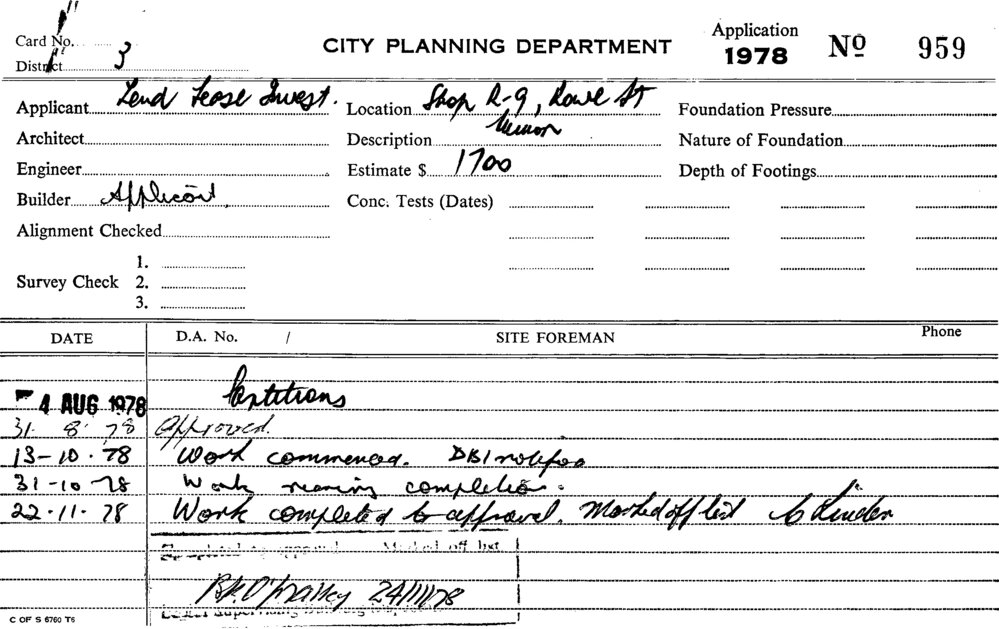 Application
Card No. CITY PLANNING DEPARTMENT 1978 No 959
District 3
Applicant Lend Lease Invest. Location Shop R-9, Rowe St Foundation Pressure
Architect Description Minor Nature of Foundation
Engineer Estimate $ 1700 Depth of Footings
Builder Applicant. Conc. Tests (Dates)
Alignment Checked
1.
Survey Check 2.
3.
DATE D.A. No. / SITE FOREMAN Phone
4 AUG 1978 Partitions
31 8 78 Approved.
13-10-78 Work commenced. DBI
31-10-78 Work nearing completion.
22-11-78 Work completed to approval. Marked off list
Completed to approval Marked off list
24/11/78
C OF S 6760 T6